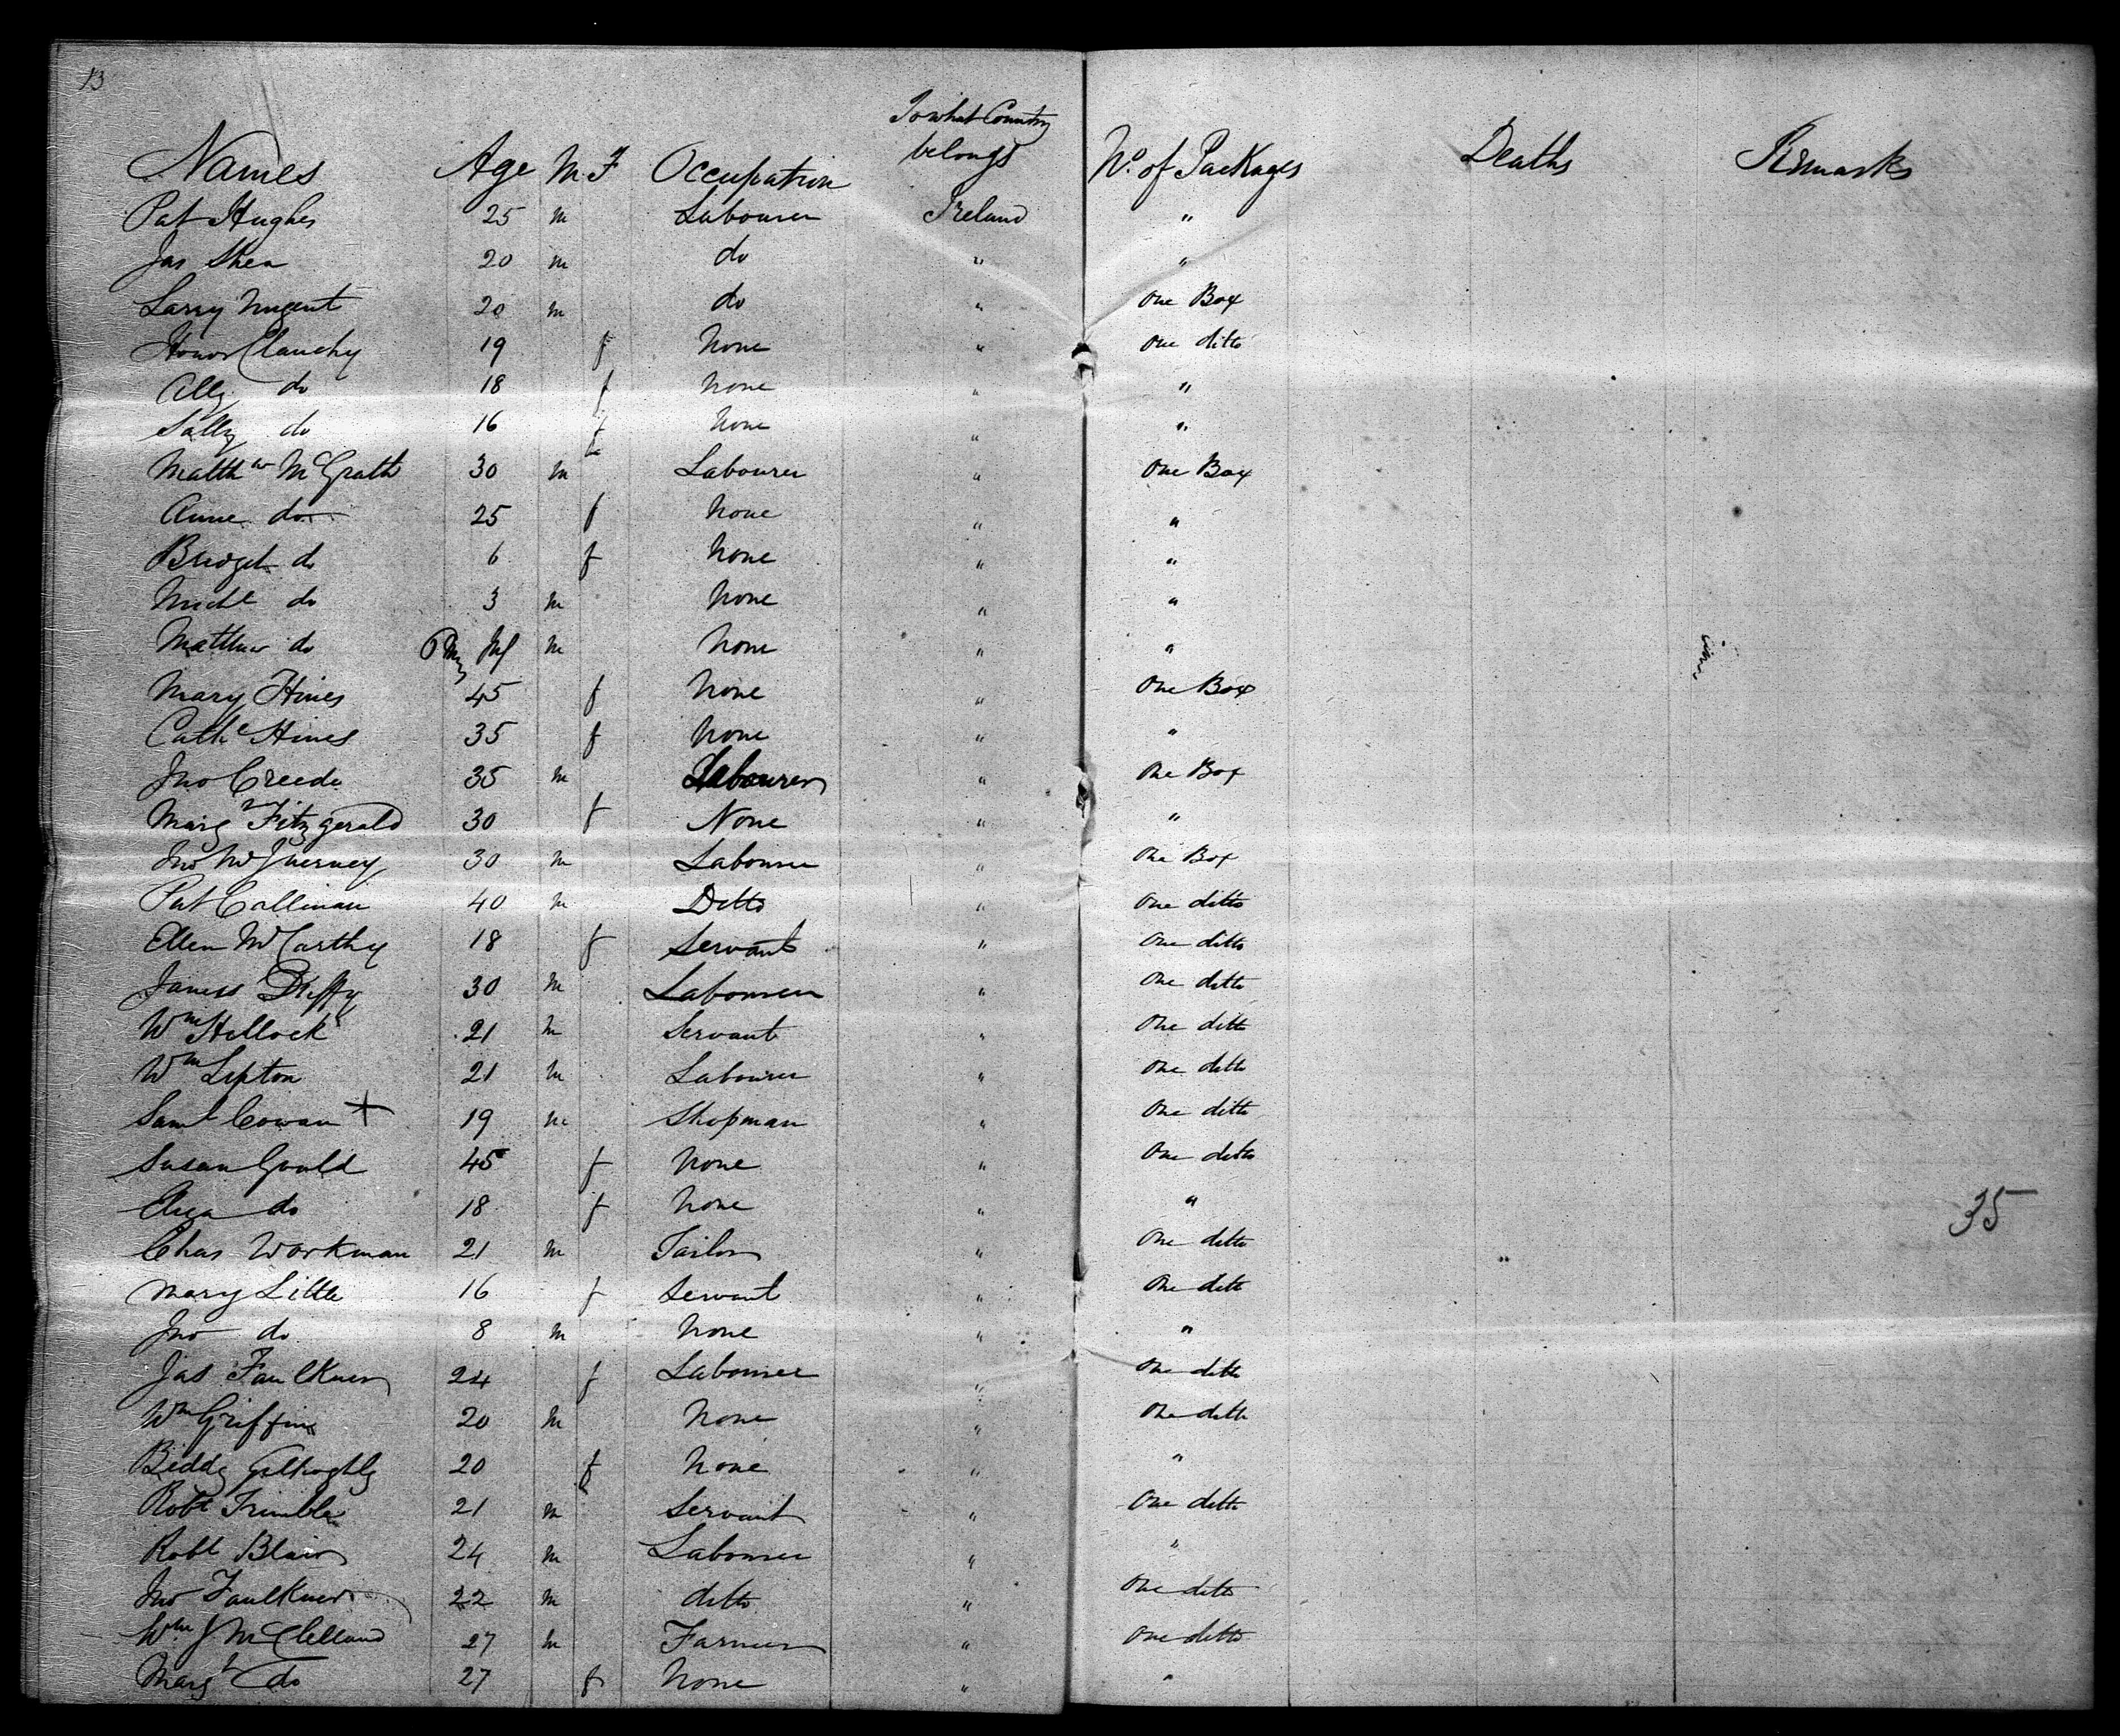 13
To what Country
Names Age M F Occupation belongs No. of Packages Deaths Remarks
Pat Hughes 25 m Labourer Ireland "
Jas Shea 20 m do " "
Larry Nugent 20 m do " One Box
Honor Clanchy 19 f None " One ditto
Ally do 18 f None " "
Sally do 16 f None " "
Matthw McGrath 30 m Labourer " One Box
Anne do 25 f None " "
Bridget do 6 f None " "
Michl do 3 m None " "
Matthew do Inf m None " "
Mary Hines 45 f None " One Box
Cathe Hines 35 f None " "
Jno Creede 35 m Labourer " One Box
Marg Fitzgerald 30 f None " "
Jno McInerney 30 m Labourer " One Box
Pat Callinan 40 m Ditto " One ditto
Ellen McCarthy 18 f Servant " One ditto
James Duffy 30 m Labourer " One ditto
Wm 21 m Servant " One ditto
Wm Lipton 21 m Labourer " One ditto
Saml Cowan + 19 m Shopman " One ditto
Susan Gould 45 f None " One ditto
Eliza do 18 f None " "
35
Chas Workman 21 m Tailor " One ditto
Mary Little 16 f Servant " One ditto
Jno do 8 m None " "
Jas Faulkner 24 f Labourer " One ditto
Wm Griffin 20 m None " One ditto
Biddy 20 f None " "
Robt Trimble 21 m Servant " One ditto
Robt Blair 24 m Labourer " "
Jno Faulkner 22 m ditto " One ditto
Wm J McClelland 27 m Farmer " One ditto
Margt do 27 f None " "